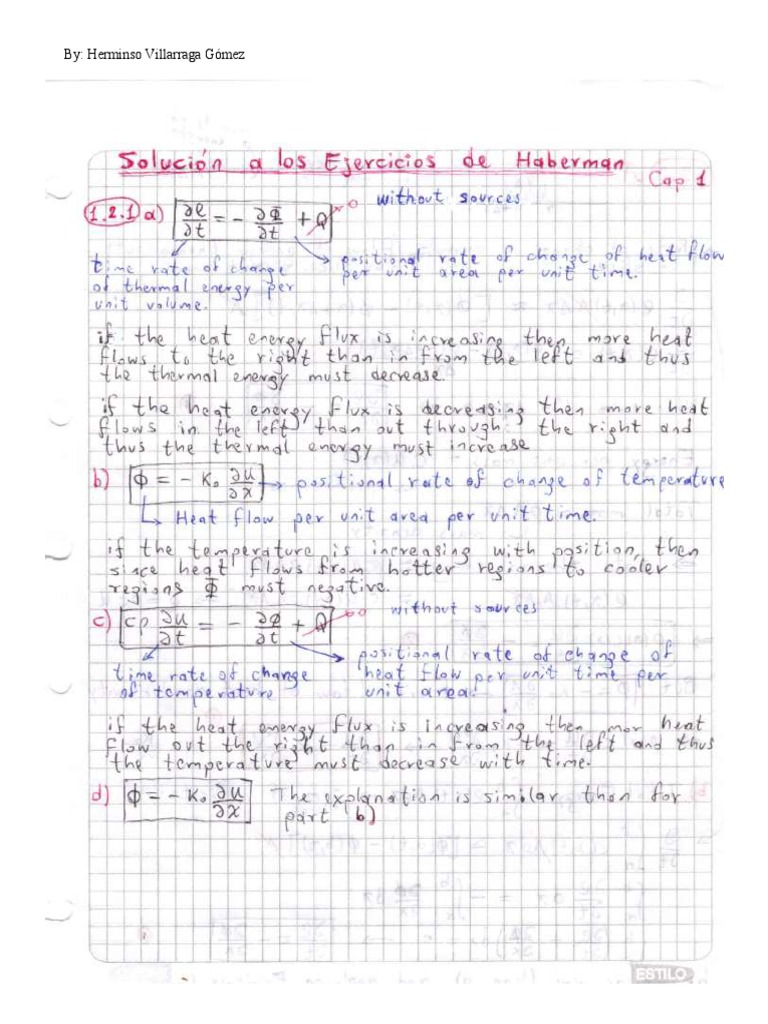 By: Herminso Villarraga Gómez
Solución a los Ejercicios de Haberman
Cap 1
1.2.1 a) ∂e/∂t = - ∂Φ/∂t + Q → 0 without sources
time rate of change
of thermal energy per
unit volume.
positional rate of change of heat flow
per unit area per unit time.
if the heat energy flux is increasing then more heat
flows to the right than in from the left and thus
the thermal energy must decrease.
if the heat energy flux is decreasing then more heat
flows in the left than out through the right and
thus the thermal energy must increase
b) Φ = - K₀ ∂u/∂x → positional rate of change of temperature
↳ Heat flow per unit area per unit time.
if the temperature is increasing with position, then
since heat flows from hotter regions to cooler
regions Φ must negative.
c) cρ ∂u/∂t = - ∂Φ/∂t + Q → 0 without sources
time rate of change
of temperature
positional rate of change of
heat flow per unit time per
unit area.
if the heat energy flux is increasing then mor heat
flow out the right than in from the left and thus
the temperature must decrease with time.
d) Φ = - K₀ ∂u/∂x The explanation is similar than for
part b)
ESTILO